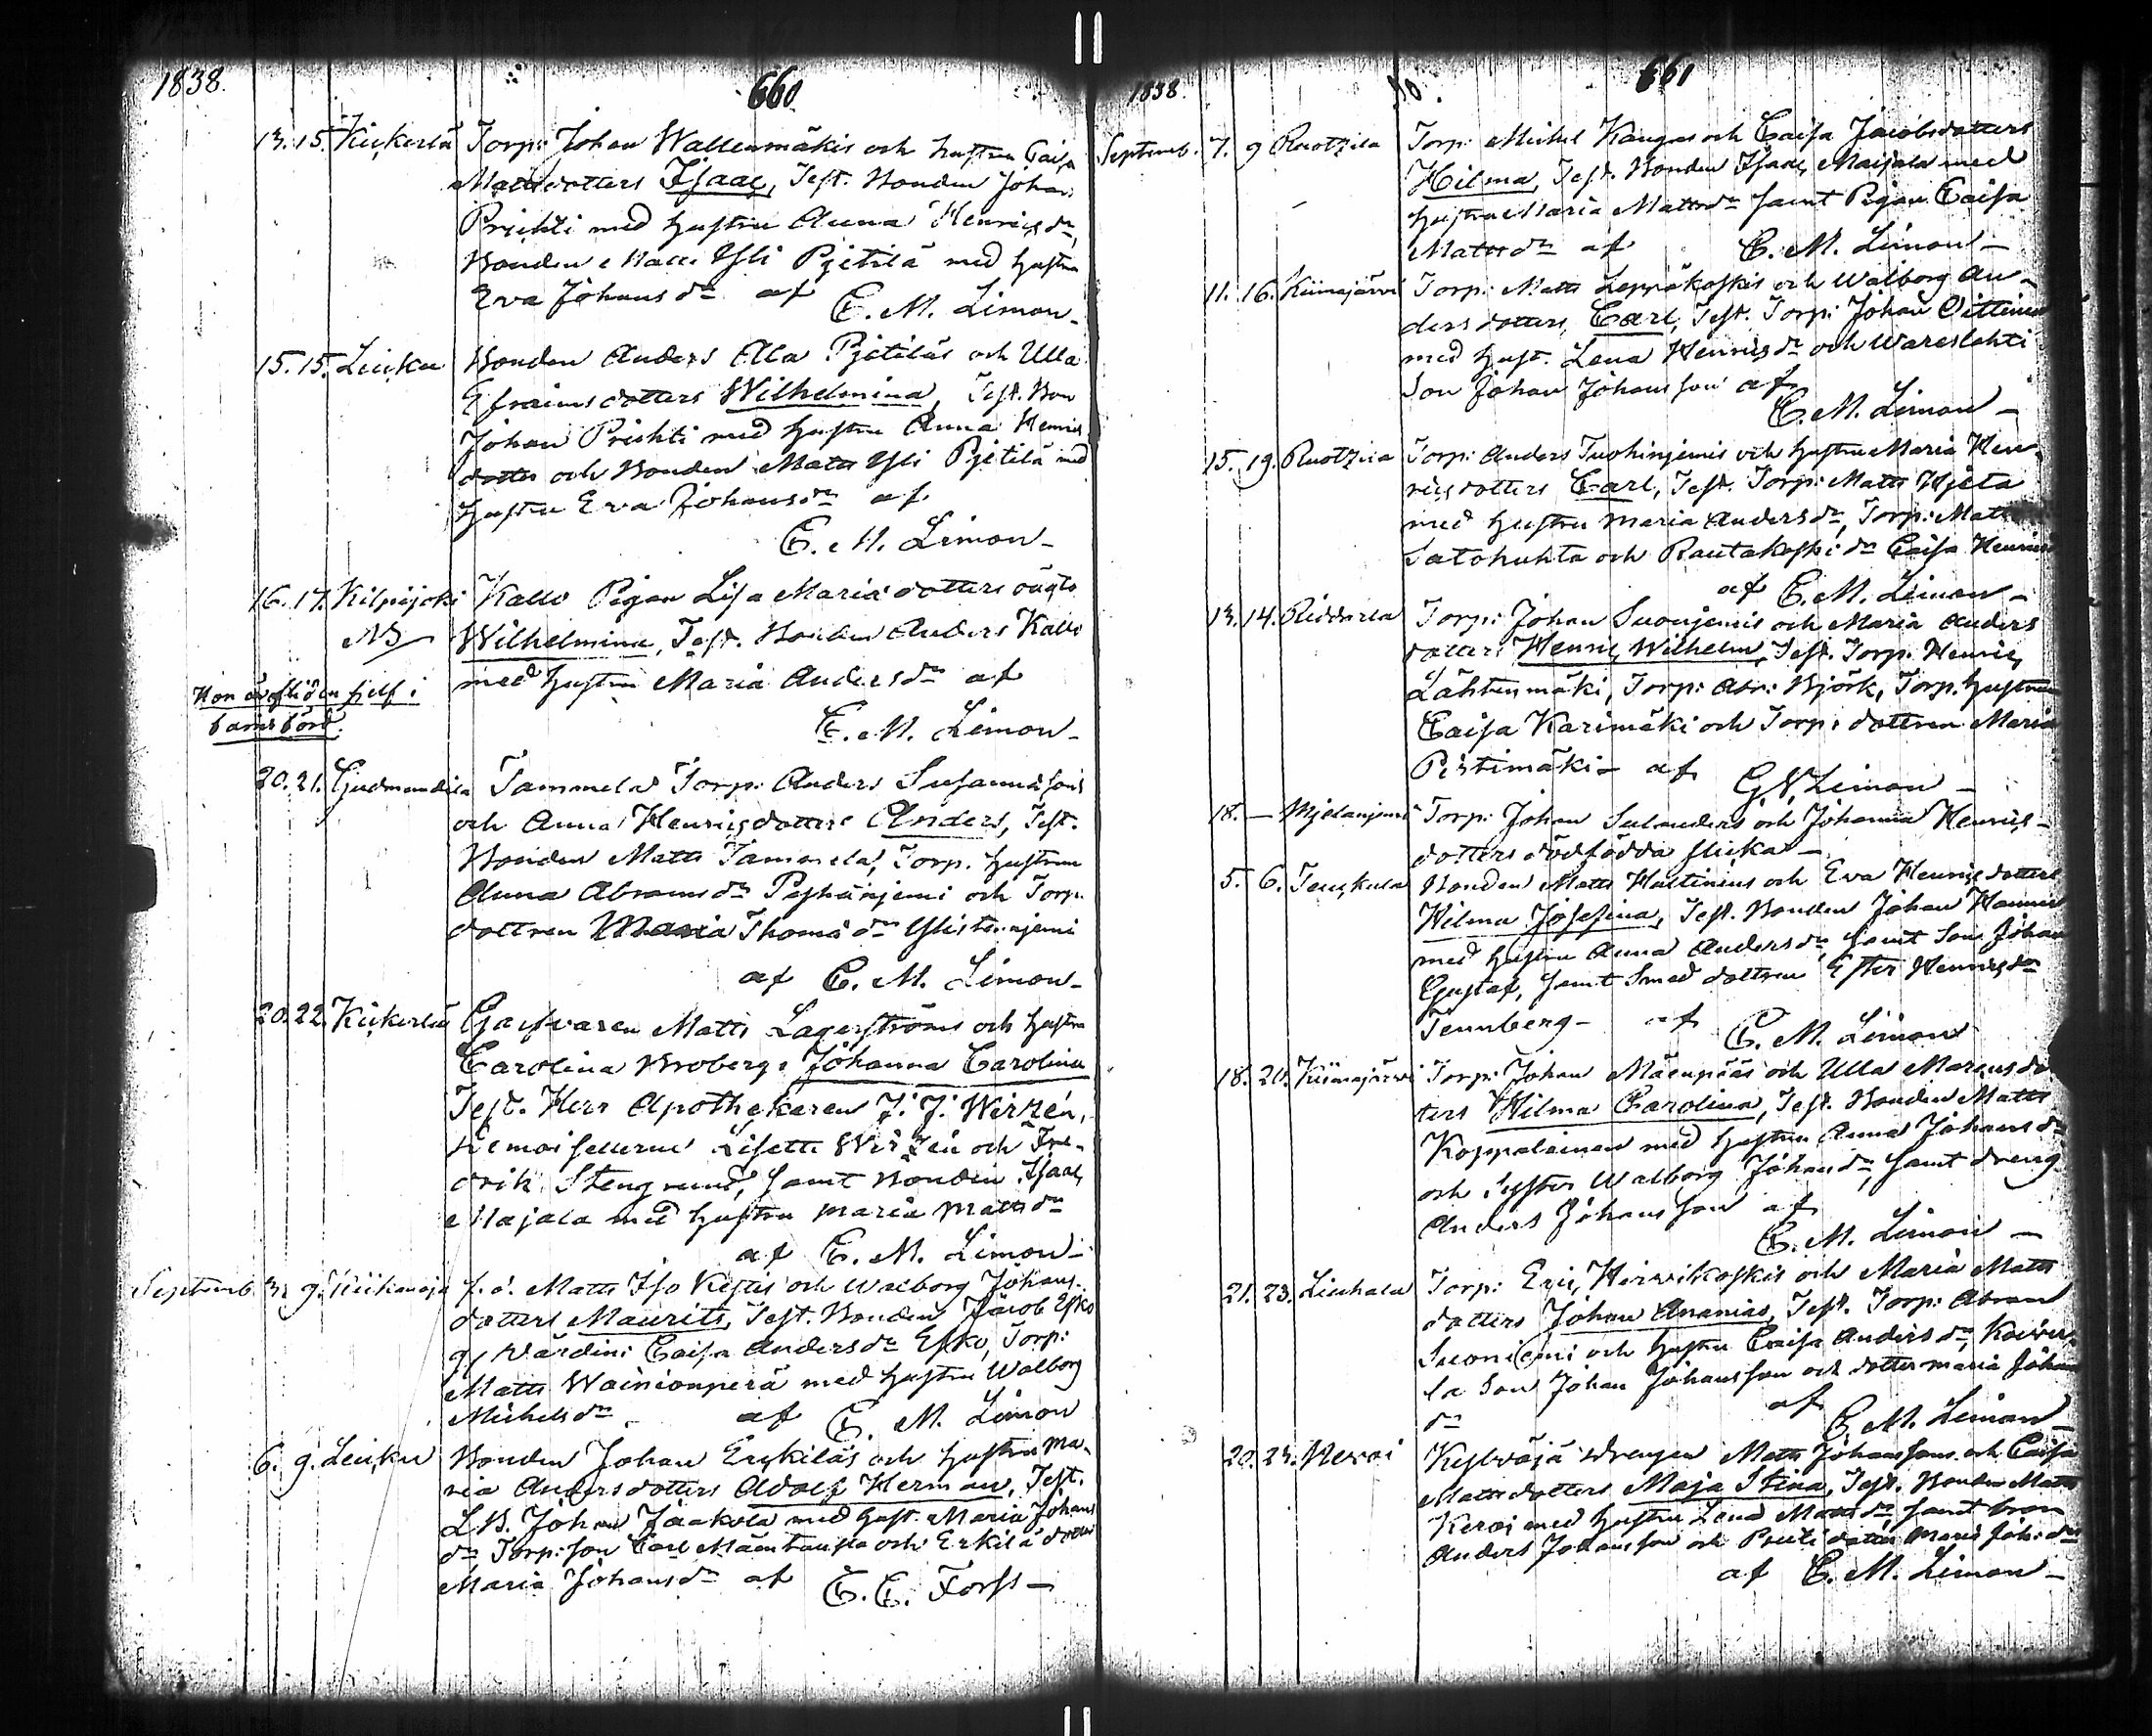 1838.
660
13. 15. Kiukerlä Torp: Johan Wallenmäkis och hustru Caisa
Mattsdotters Isaac, Test. Bonden Johan
Prihti med hustru Anna Henricsdr,
Bonden Matts Yli Pjetilä med hustru
Eva Johansdr af E. M. Limon
15. 15. Leiku Bonden Anders Ala Pjetiläs och Ulla
Efraimsdotters Wilhelmina, Test. Bon
Johan Prihti med hustru Anna Henrics
dotter och Bonden Matts Yli Pjetilä med
hustru Eva Johansdr af
E. M. Limon
16. 17. Kilpijoki Kallo Pigan Lisa Mariadotters oägta
NB Wilhelmina, Test. Bonden Anders Kallo
med hustru Maria Andersdr af
Hon är född en sjelf i
barnsbörd.
E. M. Limon
20. 21. Gudmundila Tammela Torp: Anders Susannasons
och Anna Henricsdotters Anders, Test.
Bonden Matts Tammela, Torp. hustrun
Anna Abramsdr Peskänjemi och Torp.
dottren Maria Thomasdr Ylistenjemi
af E. M. Limon
20. 22. Kiukerlä Garfvaren Matts Lagerströms och hustru
Carolina Brobergs Johanna Carolina
Test. Herr Apothekaren J. J. Wirzén,
Demoisellerne Lisette Wirzén och Fre-
drik. Stengrund, samt Bonden Isaac
Majala med hustru Maria Mattsdr
af E. M. Limon
Septemb. 3. 9. Kiikanoja f. d. Matts Iso Kestis och Walborg Johans-
dotters Maurits, Test. Bonden Jacob Esko
Caisa Andersdr Esko, Torp:
Matts Wainionperä med hustru Walborg
Michelsdr af E. M. Limon
6. 9. Leiku Bonden Johan Erkiläs och hustru Ma-
ria Andersdotters Adolf Herman, Test.
L.B. Johan Jaakola med hust. Maria Johans
dr Torp: son Carl Mäentausta och Erkilä dotter
Maria Johansdr af E. E. Forss
1838.
661
Septemb. 7. 9 Ruotzila Torp: Michel Kangas och Caisa Jacobsdotters
Hilma, Test. Bonden Isaac Maijala med
hustru Maria Mattsdr samt Pigan Caisa
Mattsdr af E. M. Limon
11. 16. Kiimajärvi Torp: Matts Leppäkoskis och Walborg An-
dersdotters, Carl, Test. Torp: Johan Oittinen
med hust. Lena Henricsdr och Wareslahti
Son Johan Johansson af
E. M. Limon
15. 19. Ruotzila Torp: Anders Tuohinjemis och hustru Maria Hen-
ricsdotters Carl, Test. Torp: Matts Hjeta
med hustru Maria Andersdr, Torp: Matts
Satohuhta och Rautakoski dr Caisa Henrics
af E. M. Limon
13. 14. Riddarla Torp: Johan Suonjemis och Maria Anders
dotters Henric Wilhelm, Test. Torp. Henric
Lähtenmäki, Torp: Abr: Björk, Torp. hustrun
Caisa Karimäki och Torp: dottren Maria
Pistimäki af G. N. Limon
18. — Mjelanjemi Torp: Johan Sulanders och Johanna Henrics-
dotters dödfödda flicka
5. 6. Teukula Bonden Matts Haltinius och Eva Henricsdotters
Hilma Josefina, Test. Bonden Johan Hannus
med hustru Anna Andersdr, samt Son Johan
Gustaf, samt Smed dottren Ester Henricsdr
Tennberg af E. M. Limon
18. 20. Kiimajärvi Torp: Johan Mäenpääs och Ulla Marcusdot
ters Hilma Carolina, Test. Bonden Matts
Koppalainen med hustru Anna Johansdr
och Syster Walborg Johansdr, samt dreng
Anders Johansson af
E. M. Limon
21. 23. Liuhala Torp: Eric Hirvikoskis och Maria Matts
dotters Johan Ananias, Test. Torp: Abram
Suoniemi och hustru Caisa Andersdr, Koivis-
la Son Johan Johansson och dotter Maria Johans
dr af E. M. Limon
20. 23. Keroi Kylväjä Drengen Matts Johanssons och Caisa
Mattsdotters Maja Stina, Test. Bonden Matts
Keroi med hustru Lena Mattsdr, samt bron
Anders Johansson och Prihti dotter Maria Joh:dr
af E. M. Limon